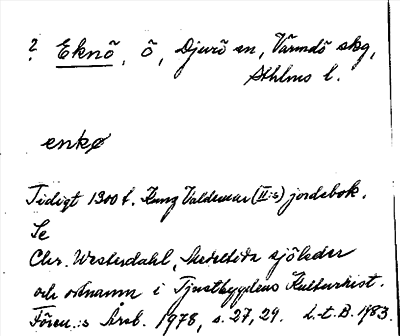 ? Eknö, ö, Djurö sn, Värmdö skg,
Sthlms l.
enkø
Tidigt 1300 t. Kung Valdemar (II:s) jordebok.
Se
Chr. Westerdahl, Medeltida sjöleder
och ortnamn i Tjustbygdens Kulturhist.
Fören.:s Årsb. 1978, s. 27, 29. L.t.B. 1983.